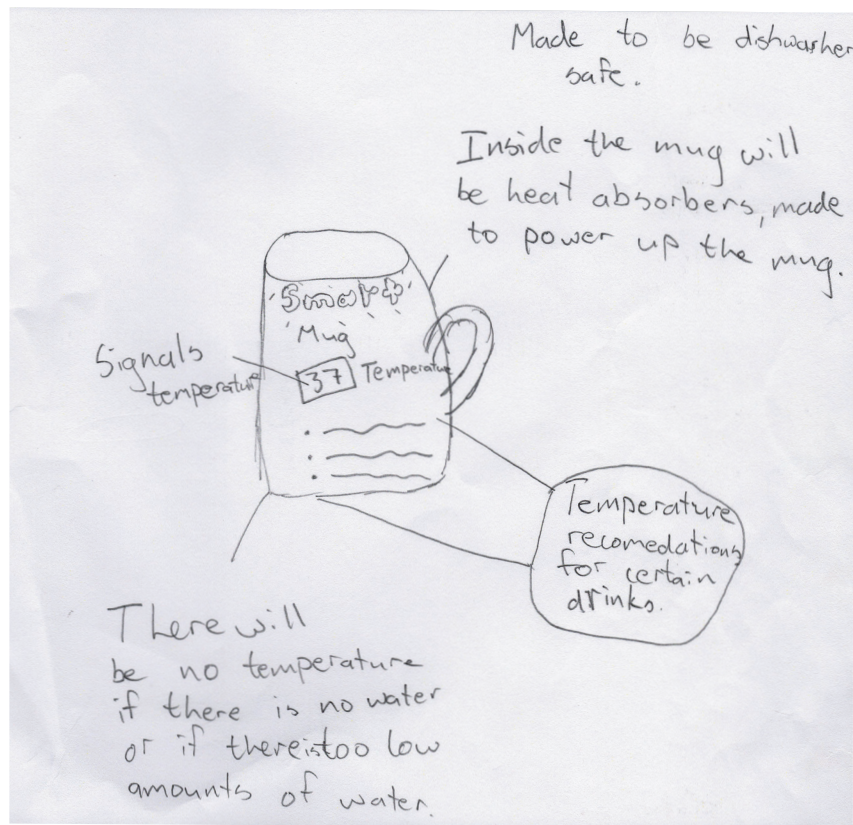 Made to be dishwasher
safe.
Inside the mug will
be heat absorbers, made
to power up the mug.
Smart
Mug
37 Temperature
Signals
temperature
Temperature
recomedations
for certain
drinks.
There will
be no temperature
if there is no water
or if there is too low
amounts of water.